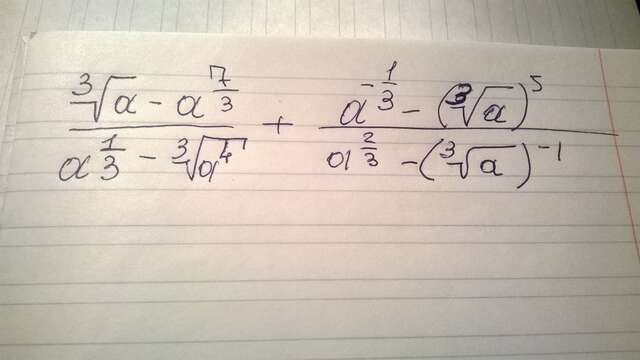 \frac{\sqrt[3]{a} - a^{\frac{7}{3}}}{a^{\frac{1}{3}} - \sqrt[3]{a^4}} + \frac{a^{-\frac{1}{3}} - (\sqrt[3]{a})^5}{a^{\frac{2}{3}} - (\sqrt[3]{a})^{-1}}